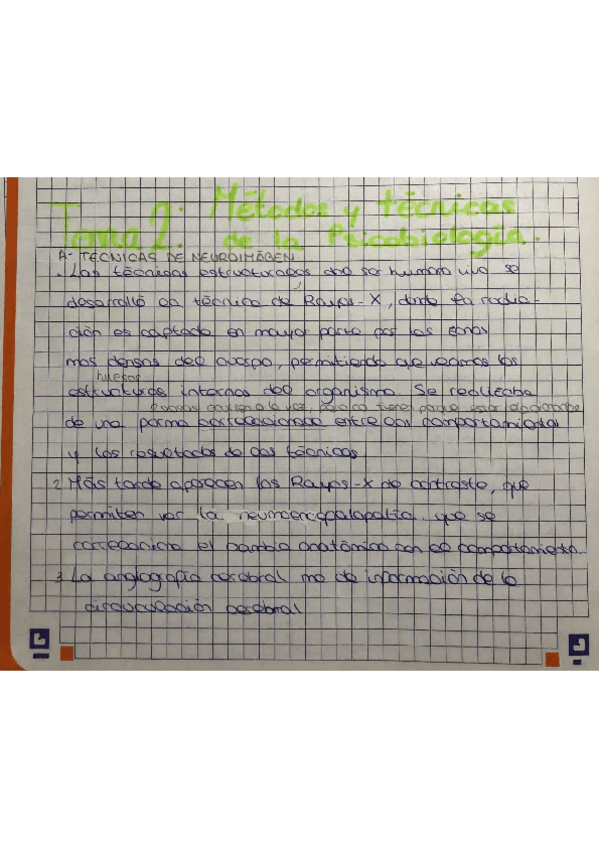 Tema 2: Métodos y técnicas
de la Psicobiología.
A- TÉCNICAS DE NEUROIMÁGEN
. Las técnicas estructurales del ser humano vivo se
desarrolló la técnica de Rayos-X, donde la radia-
ción es captada en mayor parte por las zonas
mas densas del cuerpo, permitiendo que veamos los
huesos
estructuras internas del organismo. Se realizaba
pueden
de una forma correlacionada entre los comportamientos
y los resultados de las técnicas
2. Más tarde aparecen los Rayos-X de contraste, que
permiten ver la que se
el cambio anatómico con el comportamiento
3. La angiografía cerebral me da información de la
cerebral